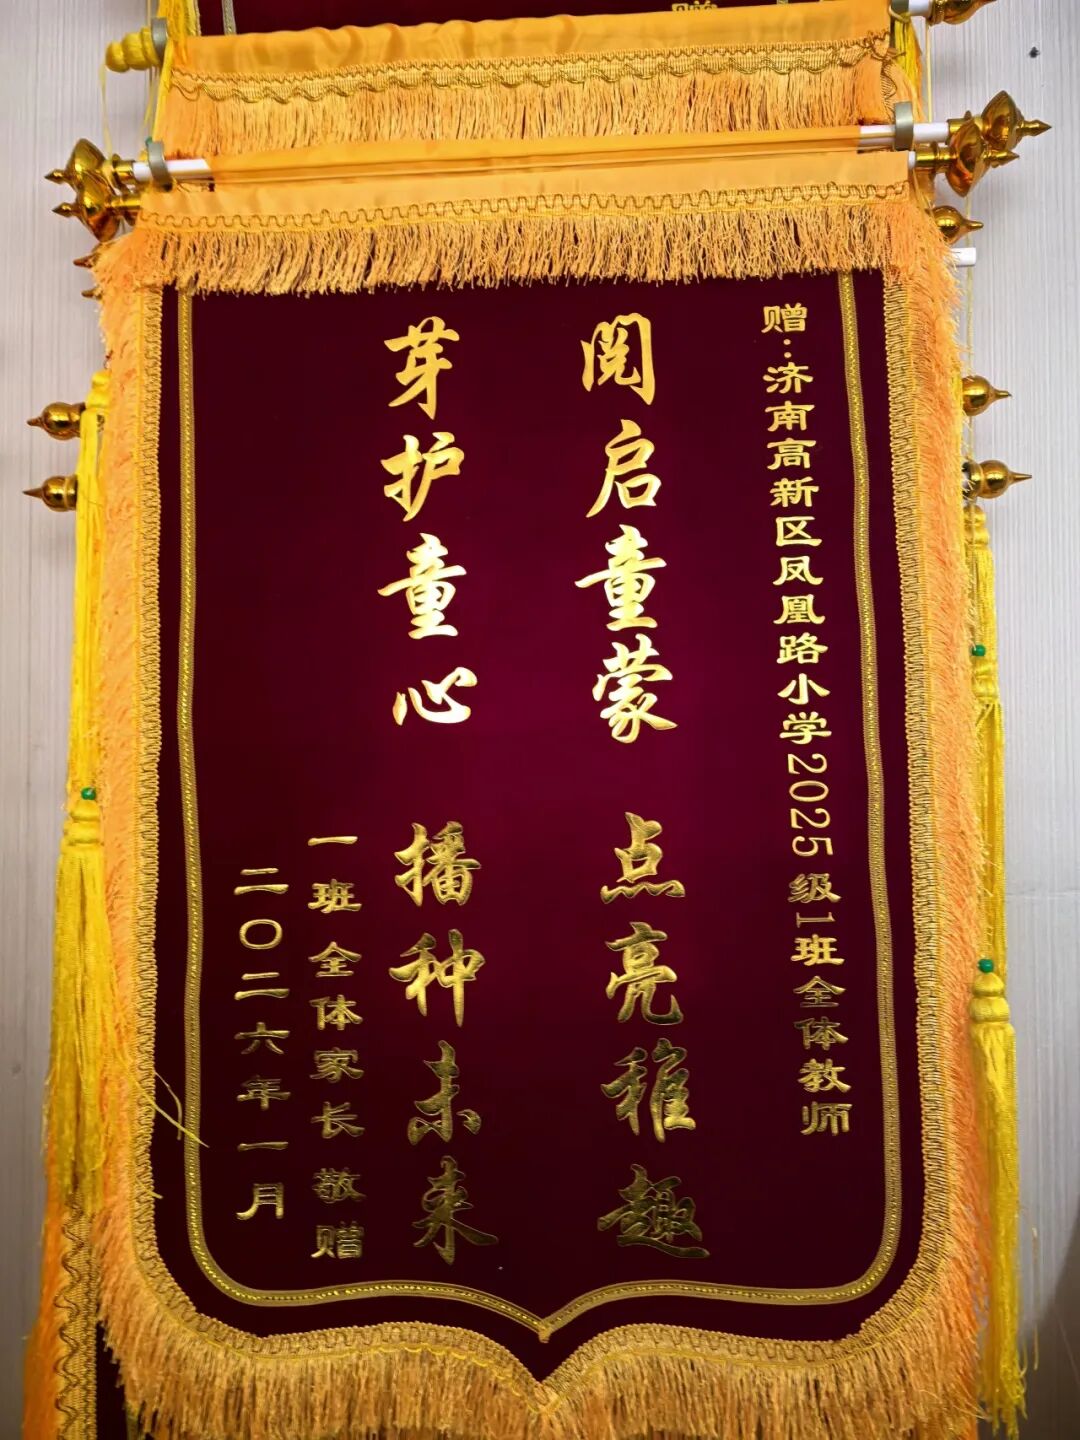 赠:济南高新区凤凰路小学2025级1班全体教师
阅启童蒙 点亮稚趣
芽护童心 播种未来
一班全体家长敬赠
二〇二六年一月